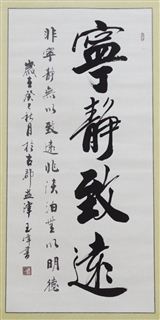 寧靜致遠
非寧靜無以致遠非淡泊無以明德
歲在癸巳秋月於古郡益津王